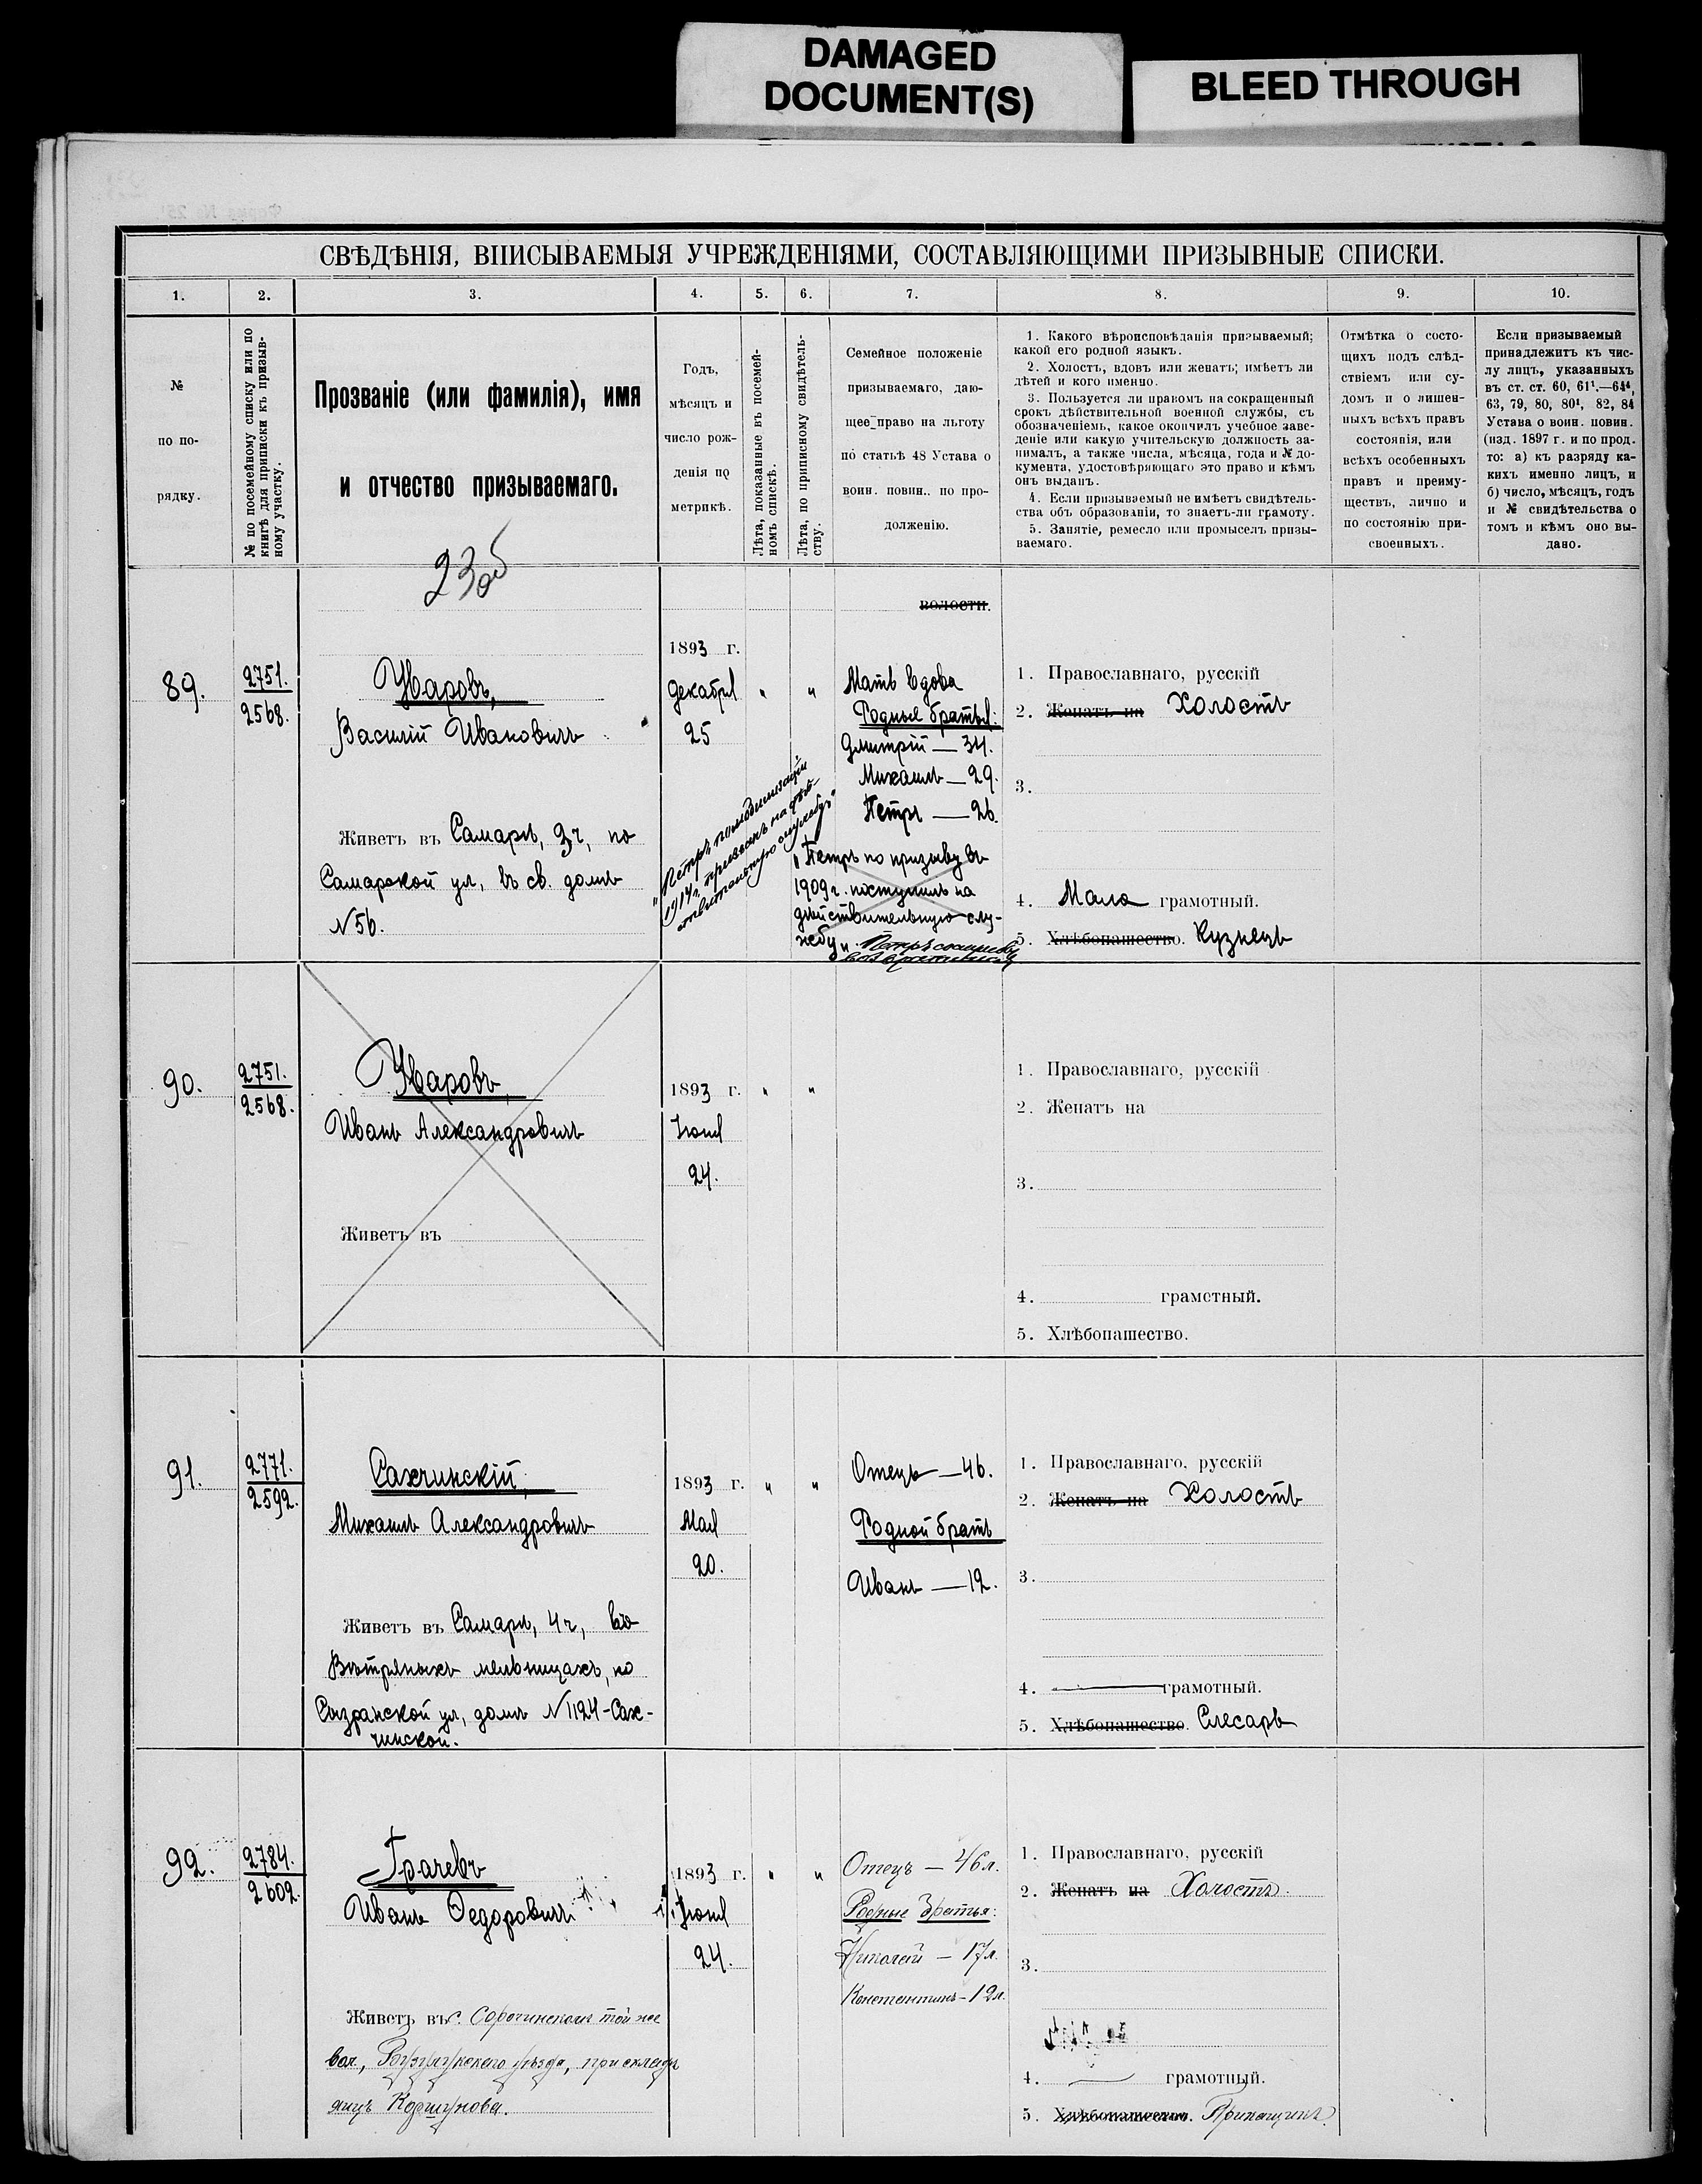 DAMAGED
DOCUMENT(S)
BLEED THROUGH
СВѢДѢНІЯ, ВПИСЫВАЕМЫЯ УЧРЕЖДЕНІЯМИ, СОСТАВЛЯЮЩИМИ ПРИЗЫВНЫЕ СПИСКИ.
1. 2. 3. 4. 5. 6. 7. 8. 9. 10.
№
по по-
рядку.
№ по посемейному списку или по
книгѣ для приписки къ призыв-
ному участку.
Прозваніе (или фамилія), имя
и отчество призываемаго.
Годъ,
мѣсяцъ и
число рож-
денія по
метрикѣ.
Лѣта, показанные въ посемей-
номъ спискѣ.
Лѣта, по приписному свидѣтель-
ству.
Семейное положеніе
призываемаго, даю-
щее право на льготу
по статьѣ 48 Устава о
воин. повин.. по про-
долженію.
1. Какого вѣроисповѣданія призываемый;
какой его родной языкъ.
2. Холостъ, вдовъ или женатъ; имѣетъ ли
дѣтей и кого именно.
3. Пользуется ли правомъ на сокращенный
срокъ дѣйствительной военной службы, съ
обозначеніемъ, какое окончилъ учебное заве-
деніе или какую учительскую должность за-
нималъ, а также числа, мѣсяца, года и № до-
кумента, удостовѣряющаго это право и кѣмъ
онъ выданъ.
4. Если призываемый не имѣетъ свидѣтель-
ства объ образованіи, то знаетъ-ли грамоту.
5. Занятіе, ремесло или промыселъ призы-
ваемаго.
Отмѣтка о состо-
щихъ подъ слѣд-
ствіемъ или су-
домъ и о лишен-
ныхъ всѣхъ правъ
состоянія, или
всѣхъ особенныхъ
правъ и преиму-
ществъ, лично и
по состоянію при-
своенныхъ.
Если призываемый
принадлежитъ къ чис-
лу лицъ, указанныхъ
въ ст. ст. 60, 61¹.—64⁴,
63, 79, 80, 80¹, 82, 84
Устава о воин. повин.
(изд. 1897 г. и по прод.
то: а) къ разряду ка-
кихъ именно лицъ, и
б) число, мѣсяцъ, годъ
и № свидѣтельства о
томъ и кѣмъ оно вы-
дано.
23об
волости.
89.
2751.
2568.
Уваровъ,
Василій Ивановичъ
Живетъ въ Самарѣ, 3ч, по
Самарской ул, въ св. домѣ
№ 56.
1893 г.
Декабря
25
" "
Мать вдова
Родные братья:
Дмитрій — 34.
Михаилъ — 29.
Петръ — 26.
"Петръ по призыву въ
1909 г. поступилъ на
дѣйствительную слу-
жбу"
"Петръ по мобилизаціи
1914 г. призванъ на дѣй-
ствительную службу"
1. Православнаго, русскій
2. Женатъ на Холостъ
3.
4. Мало грамотный.
5. Хлѣбопашество. Кузнецъ
90.
2751.
2568.
Уваровъ,
Иванъ Александровичъ
Живетъ въ
1893 г.
Іюня
24.
" "
1. Православнаго, русскій
2. Женатъ на
3.
4. грамотный.
5. Хлѣбопашество.
91.
2771.
2592.
Сахчинскій,
Михаилъ Александровичъ
Живетъ въ Самарѣ, 4ч, въ
Вѣтряныхъ мельницахъ, по
Сызранской ул, домъ № 1124 - Сах-
чинской.
1893 г.
Мая
20.
" "
Отецъ — 46.
Родной братъ
Иванъ — 12.
1. Православнаго, русскій
2. Женатъ на Холостъ
3.
4. грамотный.
5. Хлѣбопашество. Слесарь
92.
2784.
2602.
Грачевъ
Иванъ Федоровичъ
Живетъ въ с. Сорочинскомъ той же
вол., Бузулукскаго уѣзда, при складѣ
яицъ Коршунова.
1893 г.
Іюня
24.
" "
Отецъ — 46 л.
Родные братья:
Николай — 17 л.
Константинъ - 12 л.
1. Православнаго, русскій
2. Женатъ на Холостъ.
3.
4. грамотный.
5. Хлѣбопашество. Приказчикъ.